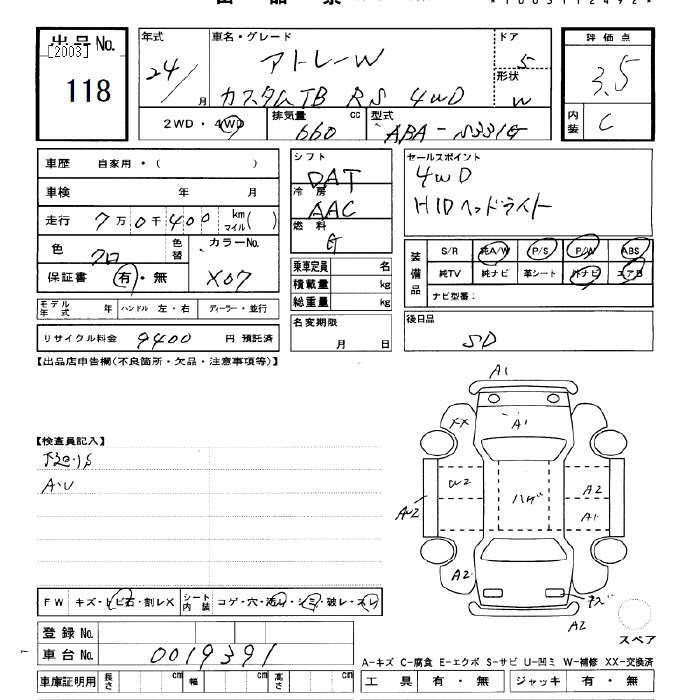 出品No.
[2003]
118
年式
24/
月
車名・グレード
アトレーW
カスタムTB RS 4WD
ドア
5
形状
W
評価点
3.5
内装
C
2WD・4WD
排気量 cc
660
型式
ABA-S331G
車歴 自家用・( )
車検 年 月
走行 7万0千400 km マイル( )
色 クロ
色替
カラーNo.
X07
保証書 有・無
モデル年式 年 ハンドル 左・右 ディーラー・並行
リサイクル料金 9400 円 預託済
シフト
DAT
冷房
AAC
燃料
G
乗車定員 名
積載量 kg
総重量 kg
名変期限
月 日
セールスポイント
4WD
HIDヘッドライト
装備品
S/R 純A/W P/S P/W ABS
純TV 純ナビ 革シート 外ナビ エアB
ナビ型番:
後日品
SD
【出品店申告欄(不良箇所・欠品・注意事項等)】
【検査員記入】
A・U
A1
XX
A1
W2
ハゲ
A2
A2
A1
A2
A2
FW キズ・トビ石・割レX
シート内装 コゲ・穴・汚レ・シミ・破レ・スレ
登録No.
車台No. 0019391
車庫証明用 長さ cm 幅 cm 高さ cm
スペア
A-キズ C-腐食 E-エクボ S-サビ U-凹ミ W-補修 XX-交換済
工具 有・無 ジャッキ 有・無